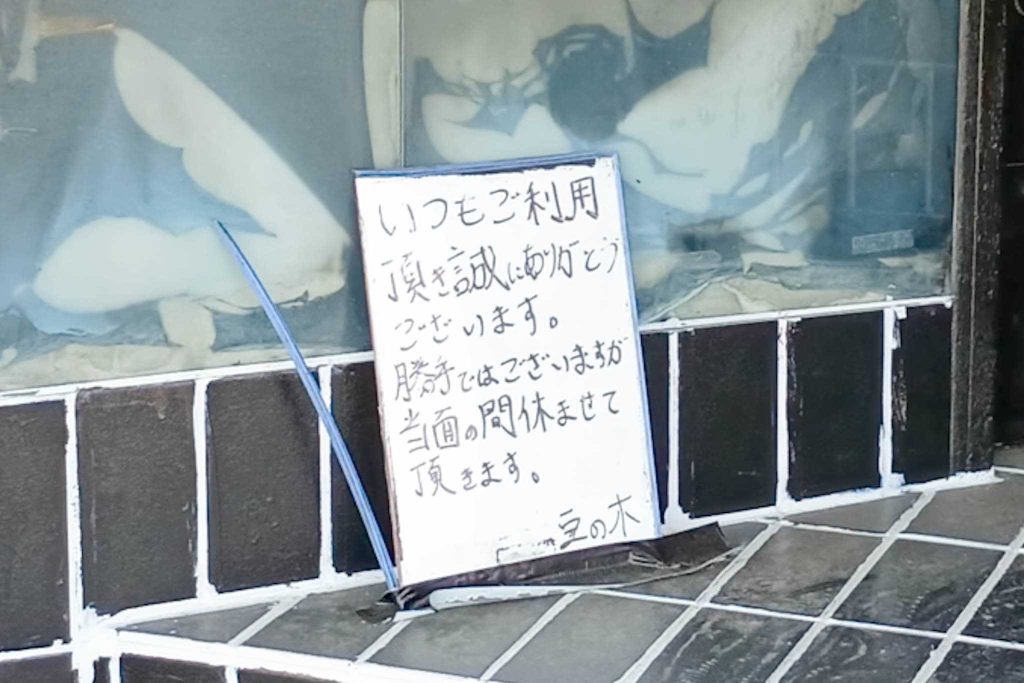 いつもご利用
頂き誠にありがとう
ございます。
勝手ではございますが
当面の間休ませて
頂きます。
豆の木